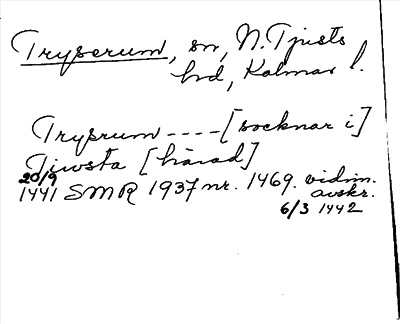 Tryserum, sn, N. Tjusts
hd, Kalmar l.
Trysrum ---- [socknar i]
Tiwsta [härad]
20/9
1441 SMR 1937 nr. 1469. vidim.
avskr.
6/3 1442